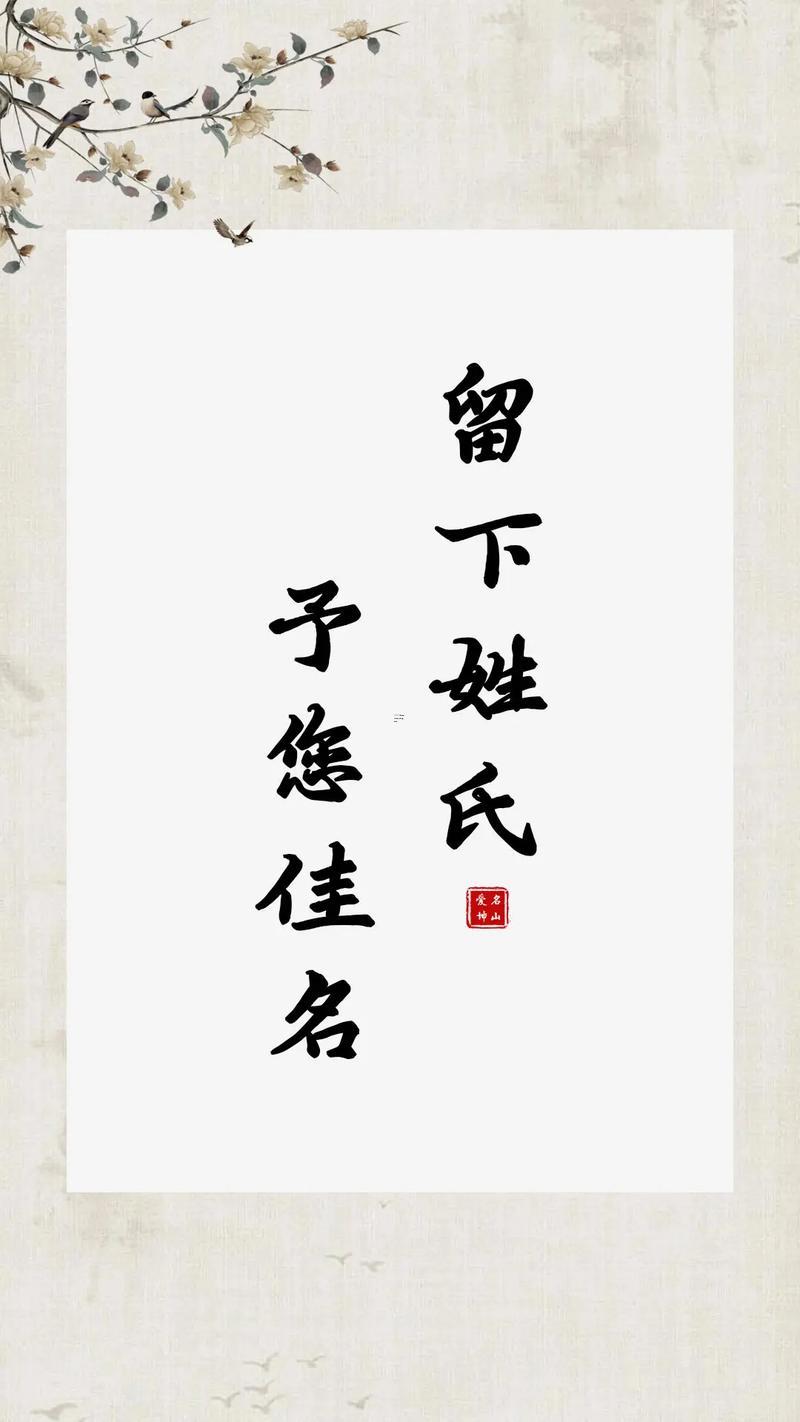 留下姓氏
予您佳名
名山
爱坤